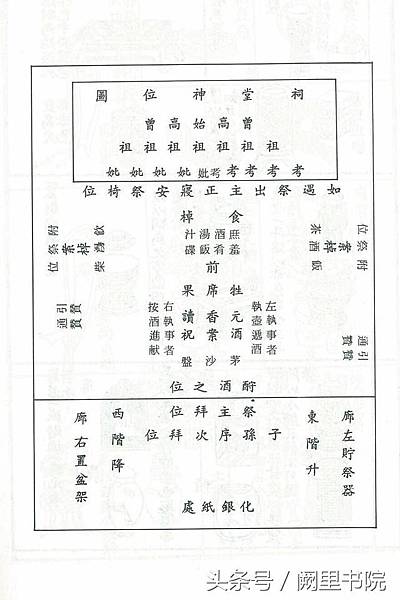 祠堂神位圖
曾高始高曾
祖祖祖祖祖祖祖
考考考考考妣妣妣妣妣
如遇祭出主正寢安祭椅位
食棹
庶羞
酒肴
湯飯
汁碟
附祭位
附祭位
前
牲席果
元酒
香案
讀祝
茅沙盤
左執事者
執壺遞酒
右執事者
按酒進献
引贊
通贊
引贊
通贊
酹酒之位
祭主拜位
子孫序次拜位
廊左貯祭器
東階升
西階降
廊右置盆架
化銀紙處
头条号 / 阙里书院